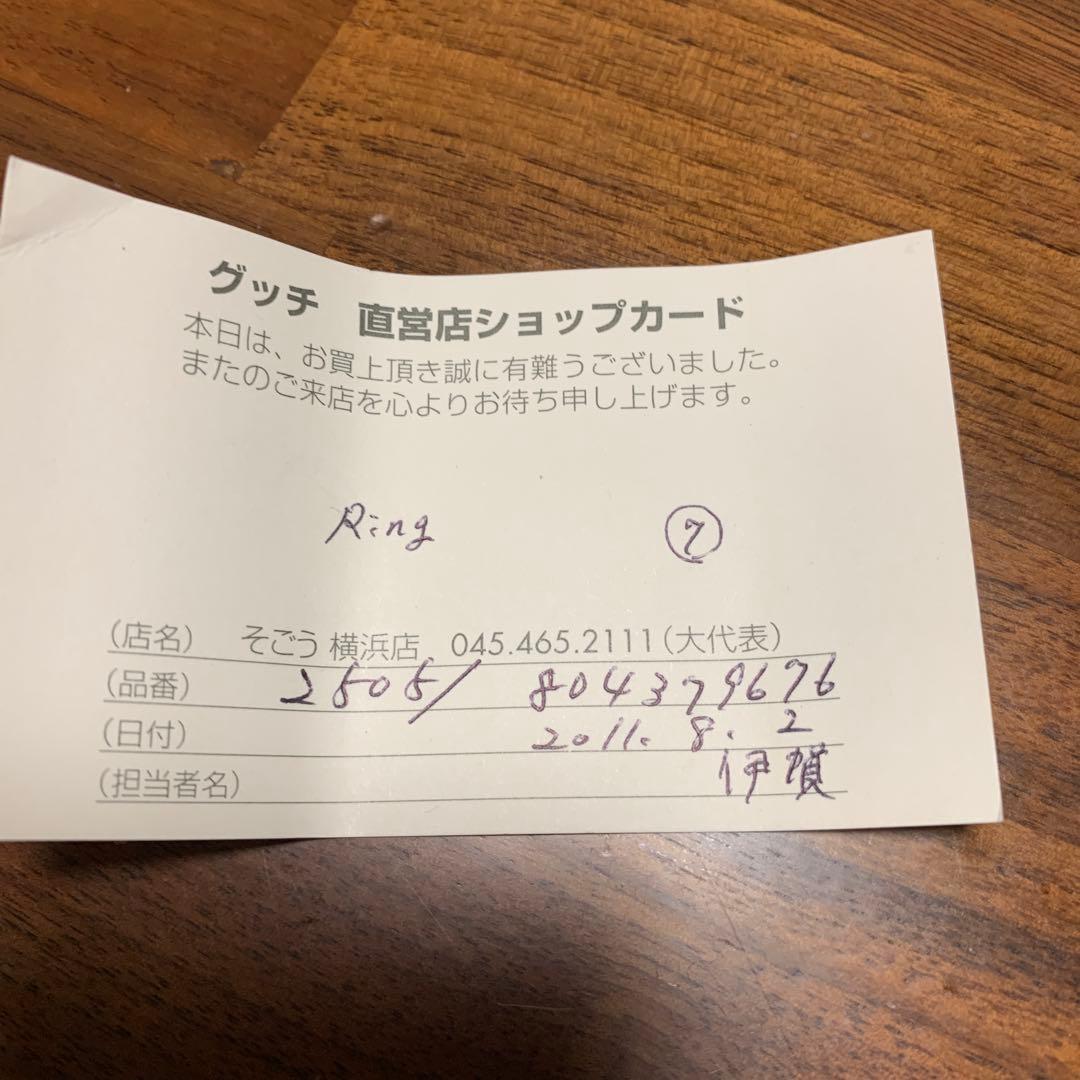 グッチ 直営店ショップカード
本日は、お買上頂き誠に有難うございました。
またのご来店を心よりお待ち申し上げます。
Ring ⑦
(店名) そごう 横浜店 045.465.2111(大代表)
(品番) 25051 804379676
(日付) 2011. 8. 2
(担当者名) 伊賀